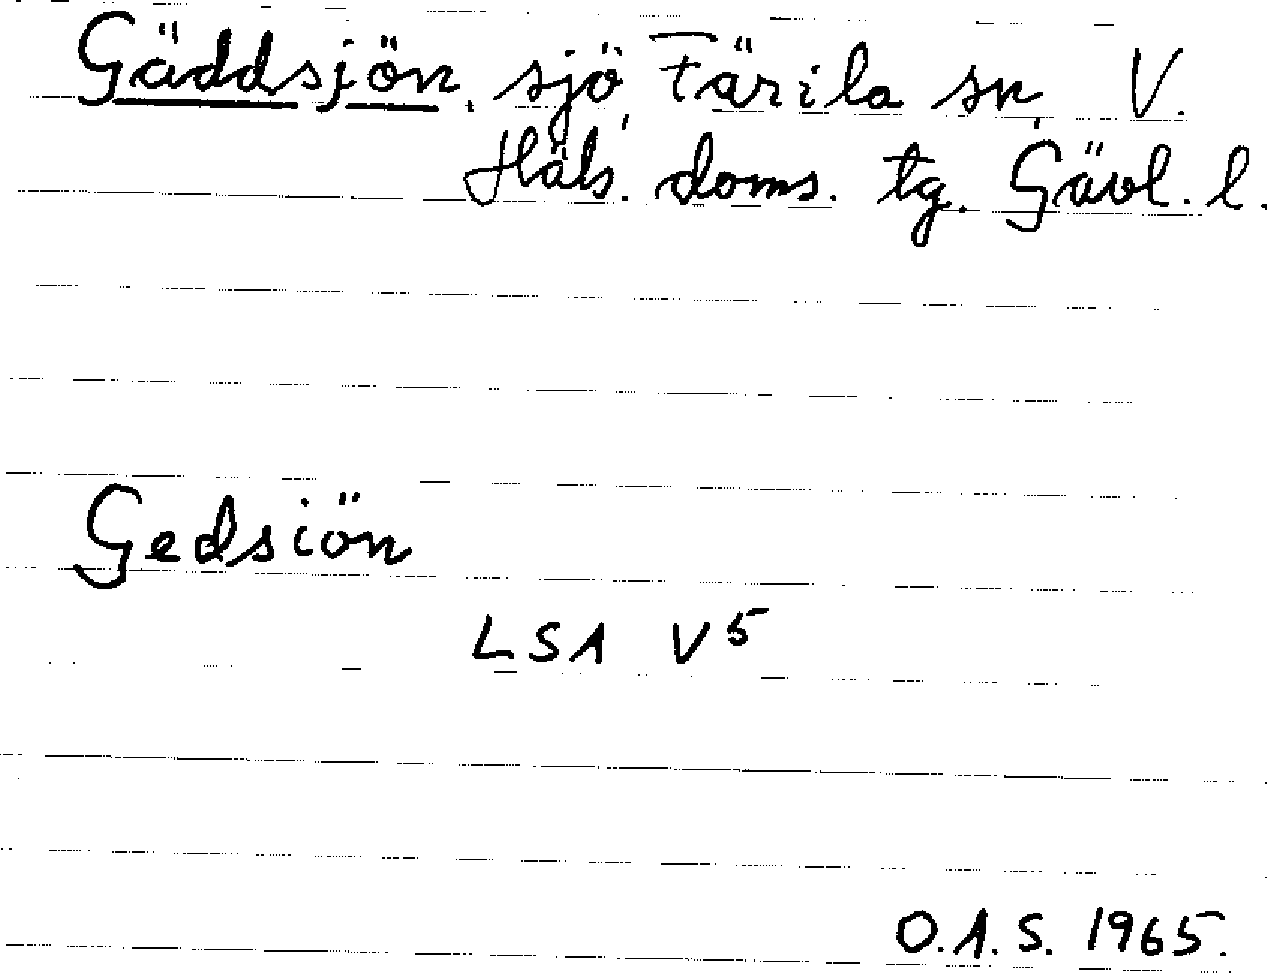 Gäddsjön, sjö, Färila sn, V.
Häls. doms. tg. Gävl. l.
Gedsiön
LSA V5
O.A.S. 1965.